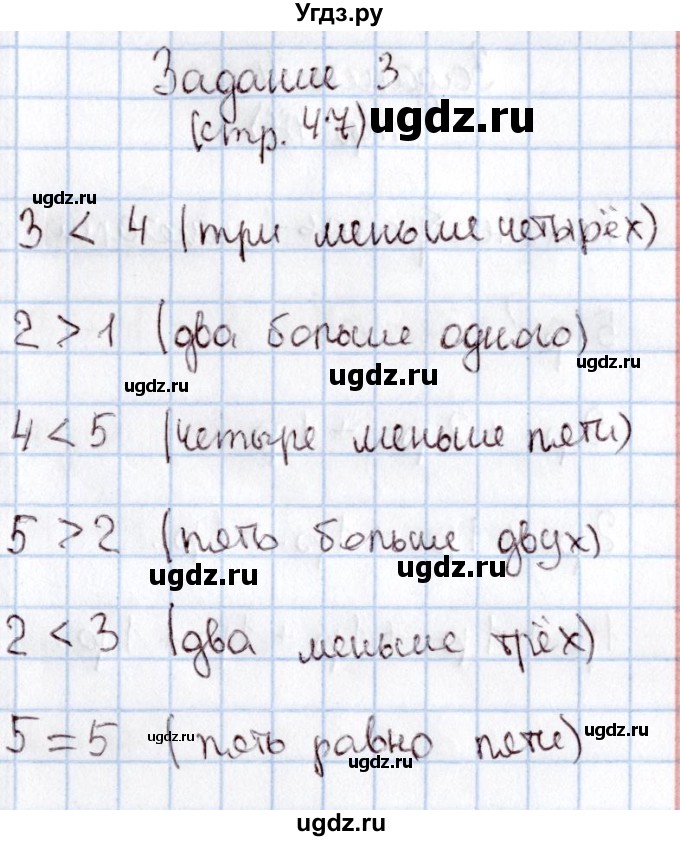 Угдз.ру
Задание 3
(стр. 47) ugdz.ru
ugdz.ru
3 < 4 (три меньше четырёх)
2 > 1 (два больше одного)
ugdz.ru ugdz.ru
4 < 5 (четыре меньше пяти)
5 > 2 (пять больше двух)
ugdz.ru ugdz.ru
2 < 3 (два меньше трёх)
5 = 5 ugdz.ru (пять равно пяти) ugdz.ru
ugdz.ru
ugdz.ru